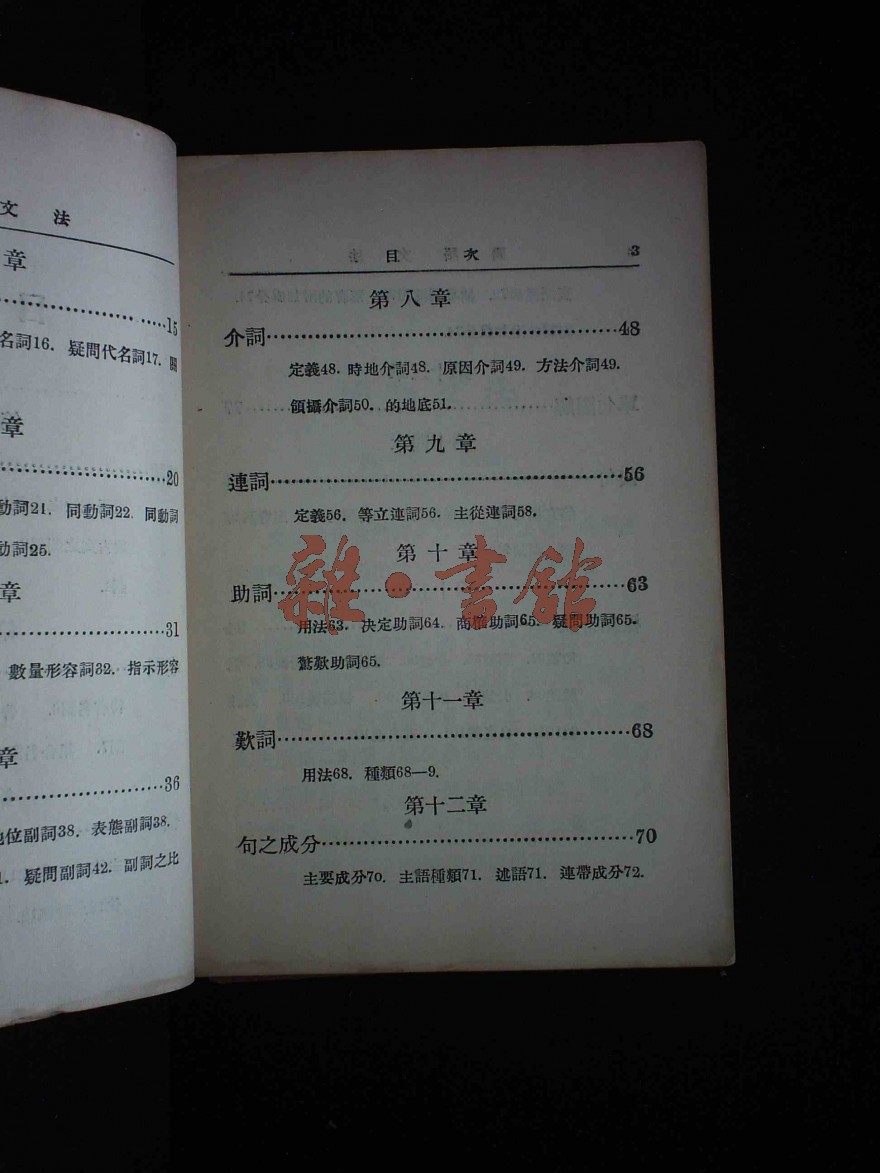 文 法
章
15
名詞16. 疑問代名詞17. 關
章
20
動詞21. 同動詞22. 同動詞
動詞25.
章
31
數量形容詞32. 指示形容
章
36
地位副詞38. 表態副詞38.
疑問副詞42. 副詞之比
目 次 3
第八章
介詞48
定義48. 時地介詞48. 原因介詞49. 方法介詞49.
領攝介詞50. 的地底51.
第九章
連詞56
定義56. 等立連詞56. 主從連詞58.
第十章
助詞63
用法63. 決定助詞64. 商榷助詞65. 疑問助詞65.
驚歎助詞65.
第十一章
歎詞68
用法68. 種類68—9.
第十二章
句之成分70
主要成分70. 主語種類71. 述語71. 連帶成分72.
雜·書館